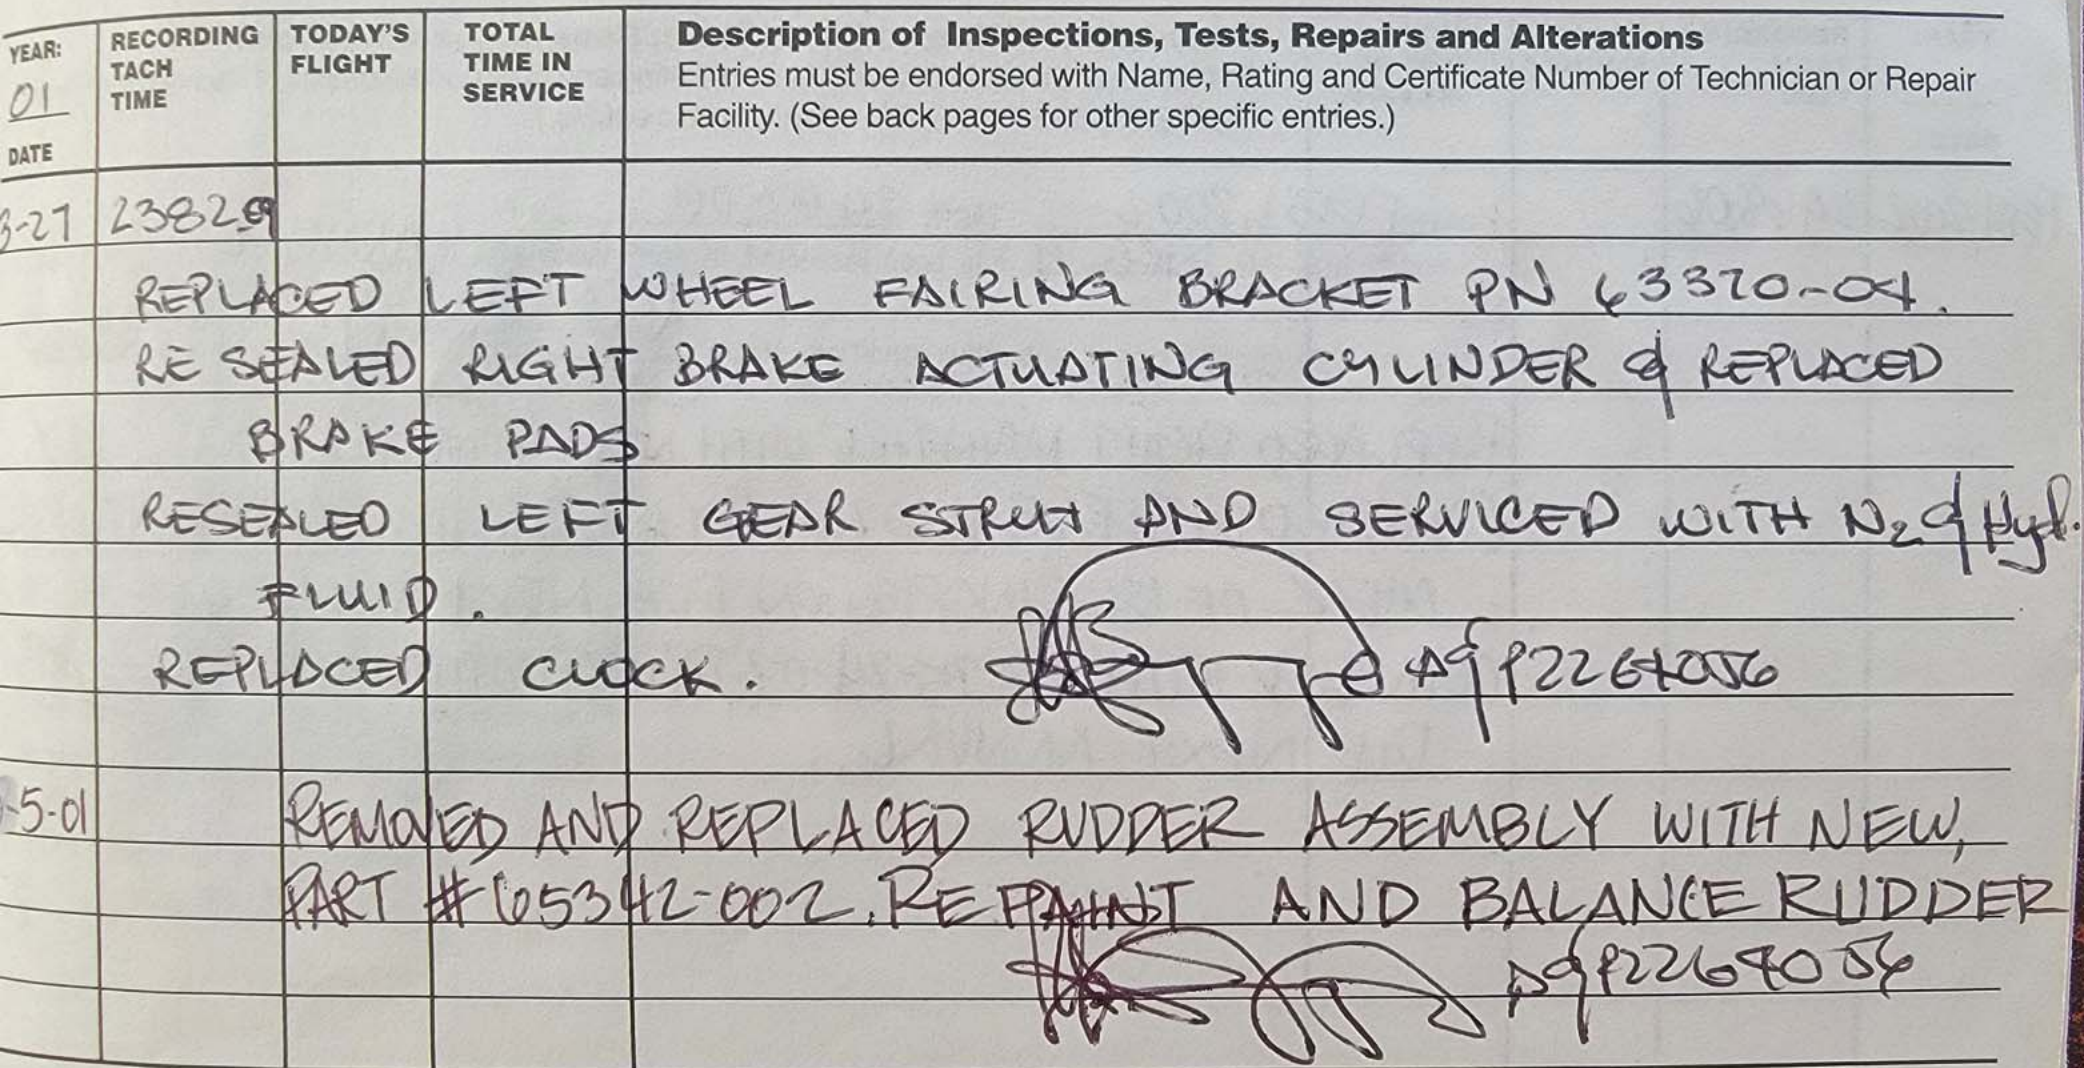 YEAR: 01 DATE
RECORDING TACH TIME
TODAY'S FLIGHT
TOTAL TIME IN SERVICE
Description of Inspections, Tests, Repairs and Alterations
Entries must be endorsed with Name, Rating and Certificate Number of Technician or Repair
Facility. (See back pages for other specific entries.)
3-27
REPLACED LEFT WHEEL FAIRING BRACKET PN 63370-04.
RE SEALED RIGHT BRAKE ACTUATING CYLINDER & REPLACED
BRAKE PADS
RESEALED LEFT GEAR STRUT AND SERVICED WITH N2 & Hyd.
FLUID.
REPLACED CLOCK. A&P2264056
5-01 REMOVED AND REPLACED RUDDER ASSEMBLY WITH NEW,
PART # 65342-002. REPAINT AND BALANCE RUDDER
A&P2264056